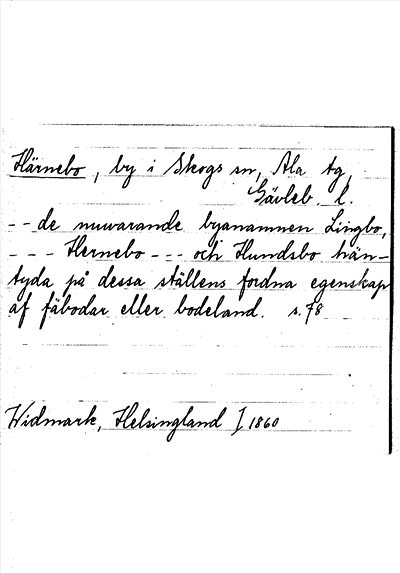 Härnebo, by i Skogs sn, Ala tg,
Gävleb. l.
-- de nuwarande byanamnen Lingbo,
--- Hernebo --- och Hundsbo hän-
tyda på dessa ställens fordna egenskap
af fäbodar eller bodeland. s. 78
Widmark, Helsingland I 1860